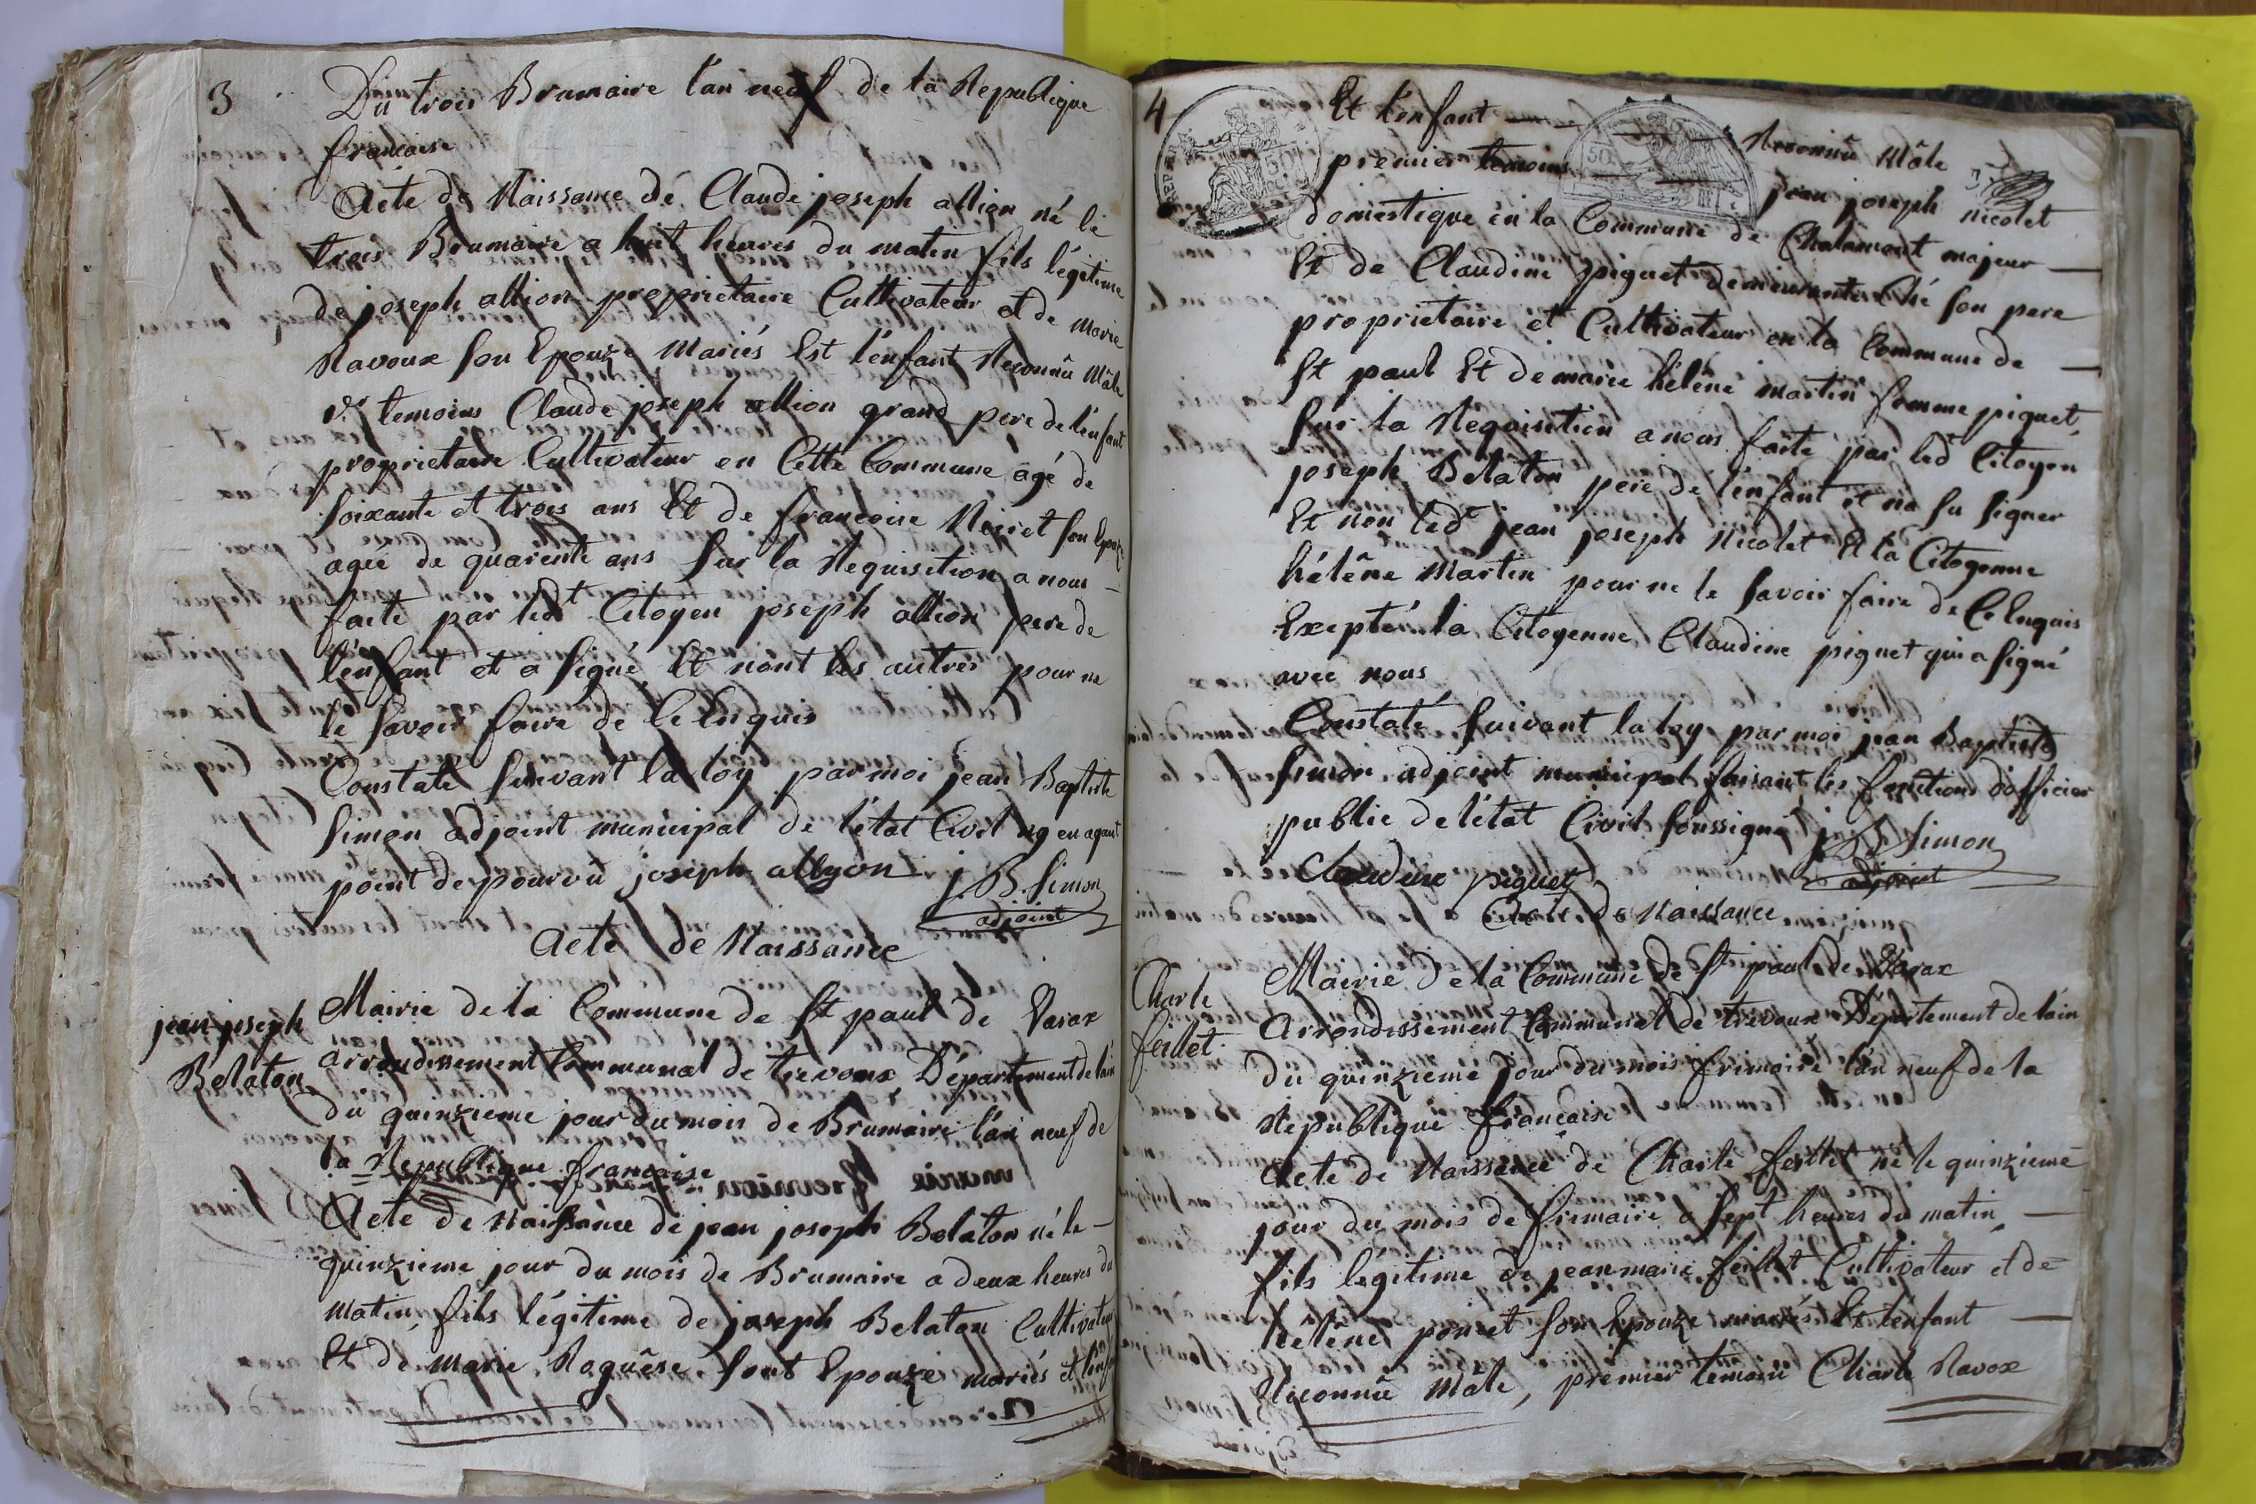 3
Du trois Brumaire l'an neuf de la Republique
francaise
Acte de Naissance de Claude joseph allion né le
trois Brumaire a huit heures du matin fils légitime
de joseph allion proprietaire Cultivateur et de marie
Ravoux son Epouze Mariés Est l'enfant Reconnû Mâle
temoins Claude joseph allion grand pere de l'enfant
proprietaire Cultivateur en Cette Commune âgé de
soixante et trois ans Et de francoise Neiret son Epouze
agée de quarente ans sur la Requisition a nous
faite par led.t Citoyen joseph allion pere de
l'enfant et a signé Et nont les autres pour ne
le savoir faire de Ce Enquis
Constaté suivant la loy par moi jean Baptiste
Simon adjoint municipal de l'état Civil ny en ayant
point de pourvû joseph allyon j. B. Simon
adjoint
Acte de Naissance
jean joseph
Belaton
Mairie de la Commune de St paul de Varax
arrondissement Communal de trevoux Département de lain
du quinzieme jour du mois de Brumaire l'an neuf de
la Republique francaise
Acte de Naissance de jean joseph Belaton né le
quinzieme jour du mois de Brumaire a deux heures du
matin fils légitime de joseph Belaton Cultivateur
Et de Marie Roguêse sont Epouze mariés et lenf
4
Et l'enfant Reconnû Mâle
premier temoins jean joseph Nicolet
domestique en la Commune de Chalamont majeur
Et de Claudine piquet demeurante Ché son pere
proprietaire et Cultivateur en la Commune de
St paul Et de marie hélêne martin femme piquet
sur la Requisition a nous faite par led Citoyen
joseph Belaton pere de l'enfant et na su signer
Et non led.t jean joseph Nicolet Et la Citoyenne
hélêne Martin pour ne le savoir faire de Ce Enquis
Exepté la Citoyenne Claudine piquet qui a signé
avec nous
Constaté suivant la loy par moi jean Baptiste
Simon adjoint municipal faisant les fonctions d'officier
public de l'état Civil soussigné j. B Simon
Claudine piquet adjoint
Acte de Naissance
Charle
feillet
Mairie de la Commune de St paul de Varax
Arrondissement Communal de trevoux Département de lain
du quinzieme jour du mois frimaire l'an neuf de la
Republique francaise
Acte de Naissance de Charle feillet né le quinzieme
jour du mois de frimaire a sept heures du matin
fils légitime de jean marie feillet Cultivateur et de
hélêne poncet son Epouze mariés Et l'enfant
Reconnû Mâle, premier temoin Charle Ravox